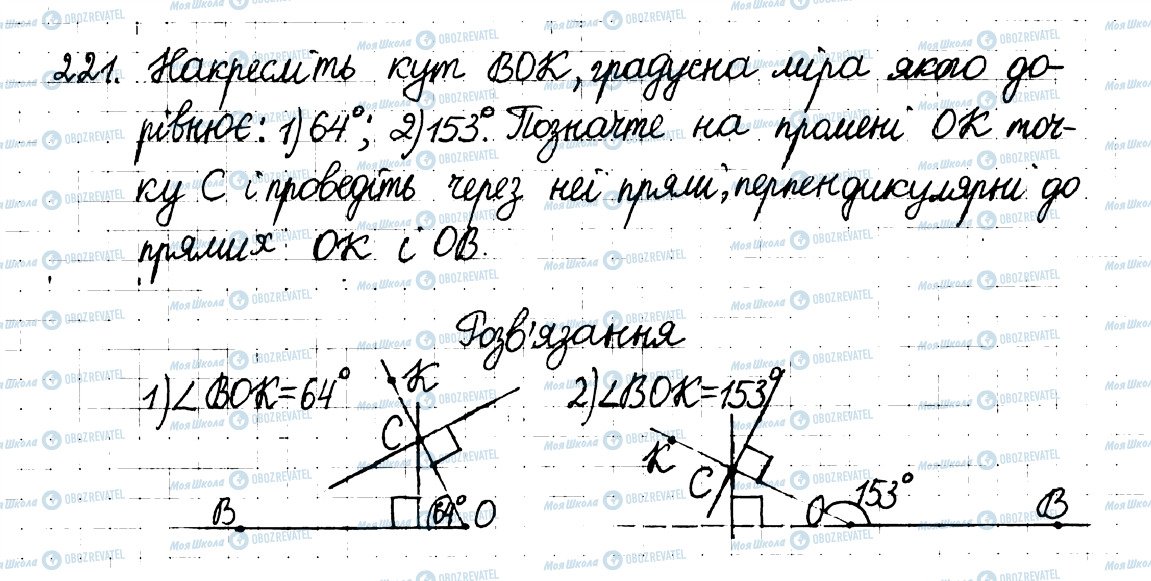 221. Накресліть кут ВОК, градусна міра якого до-
рівнює: 1) 64°; 2) 153°. Позначте на промені ОК точ-
ку С і проведіть через неї прямі, перпендикулярні до
прямих ОК і ОВ.
Розв'язання
1) ∠ВОК=64°
2) ∠ВОК=153°
К
С
В
64°
О
К
С
О
153°
В